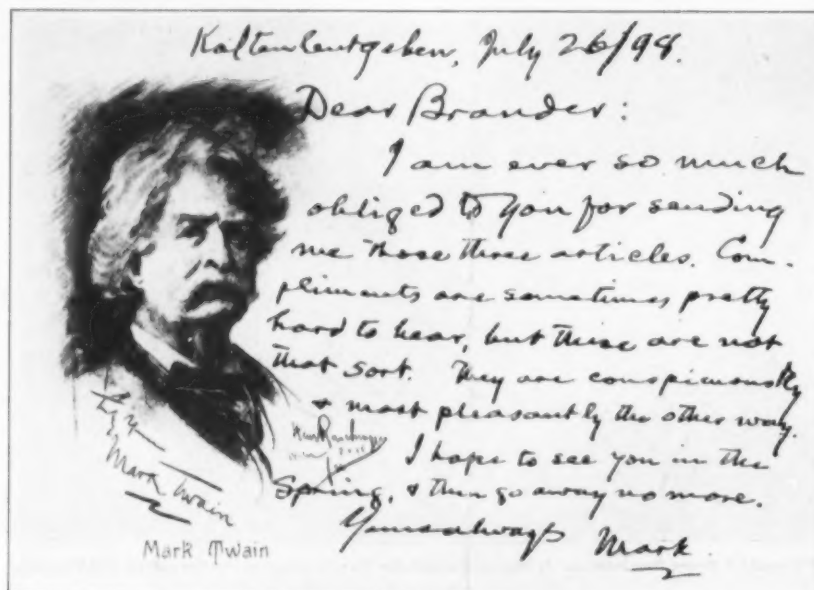 Kaltenleutgeben, July 26/98.
Dear Brander:
I am ever so much
obliged to you for sending
me those three articles. Com-
pliments are sometimes pretty
hard to hear, but these are not
that sort. They are conspicuously
& most pleasantly the other way.
I hope to see you in the
Spring, & then go away no more.
Yours always Mark
Mark Twain
Mark Twain